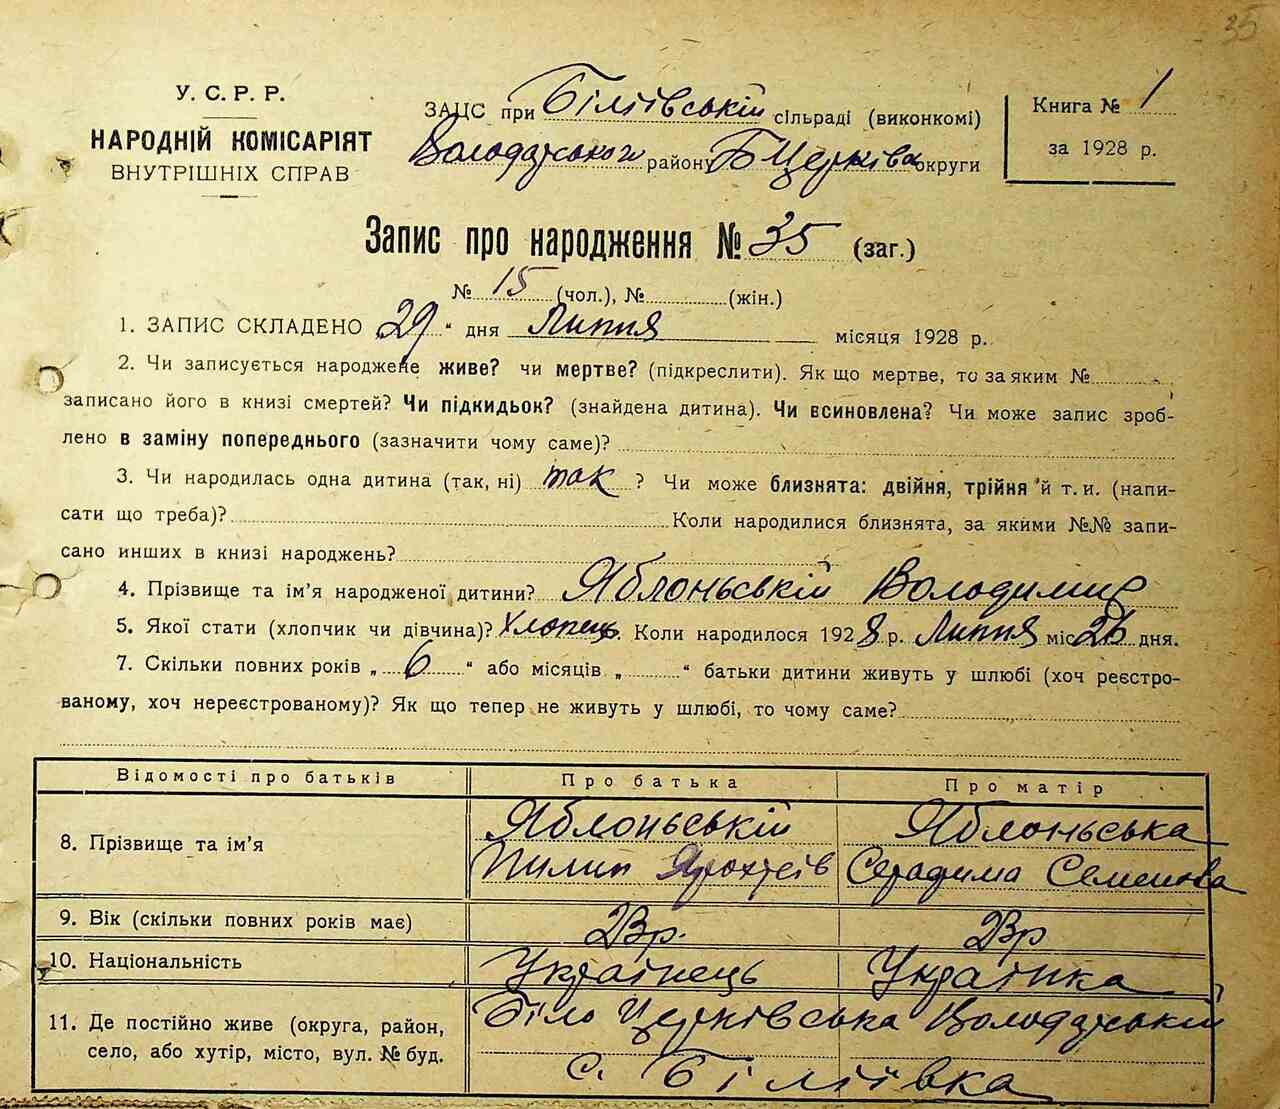 35
У. С. Р. Р.
НАРОДНІЙ КОМІСАРІЯТ
ВНУТРІШНІХ СПРАВ
ЗАЦС при Біліївській сільраді (виконкомі)
Володарського району Б Церківс округи
Книга № 1
за 1928 р.
Запис про народження № 35 (заг.)
№ 15 (чол.), № (жін.)
1. ЗАПИС СКЛАДЕНО 29 " дня Липня місяця 1928 р.
2. Чи записується народжене живе? чи мертве? (підкреслити). Як що мертве, то за яким №
записано його в книзі смертей? Чи підкидьок? (знайдена дитина). Чи всиновлена? Чи може запис зроб-
лено в заміну попереднього (зазначити чому саме)?
3. Чи народилась одна дитина (так, ні) так ? Чи може близнята: двійня, трійня й т. и. (напи-
сати що треба)? Коли народилися близнята, за якими №№ запи-
сано инших в книзі народжень?
4. Прізвище та ім'я народженої дитини? Яблоньській Володимир
5. Якої стати (хлопчик чи дівчина)? Хлопець. Коли народилося 1928 р. Липня міс 26 дня.
7. Скільки повних років „ 6 " або місяців „ " батьки дитини живуть у шлюбі (хоч реєстро-
ваному, хоч нереєстрованому)? Як що тепер не живуть у шлюбі, то чому саме?
Відомості про батьків Про батька Про матір
8. Прізвище та ім'я Яблоньській Яблоньська
Пилип Семенова
9. Вік (скільки повних років має)
10. Національність Українець Українка
11. Де постійно живе (округа, район, Біло Церківська Володарській
село, або хутір, місто, вул. № буд. с. Біліївка